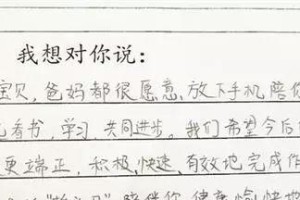 我想对你说：
宝贝，爸妈都很愿意放下手机陪你
看书，学习，共同进步。我们希望今后
更端正，积极、快速、有效地完成作
陪伴你健康愉快地